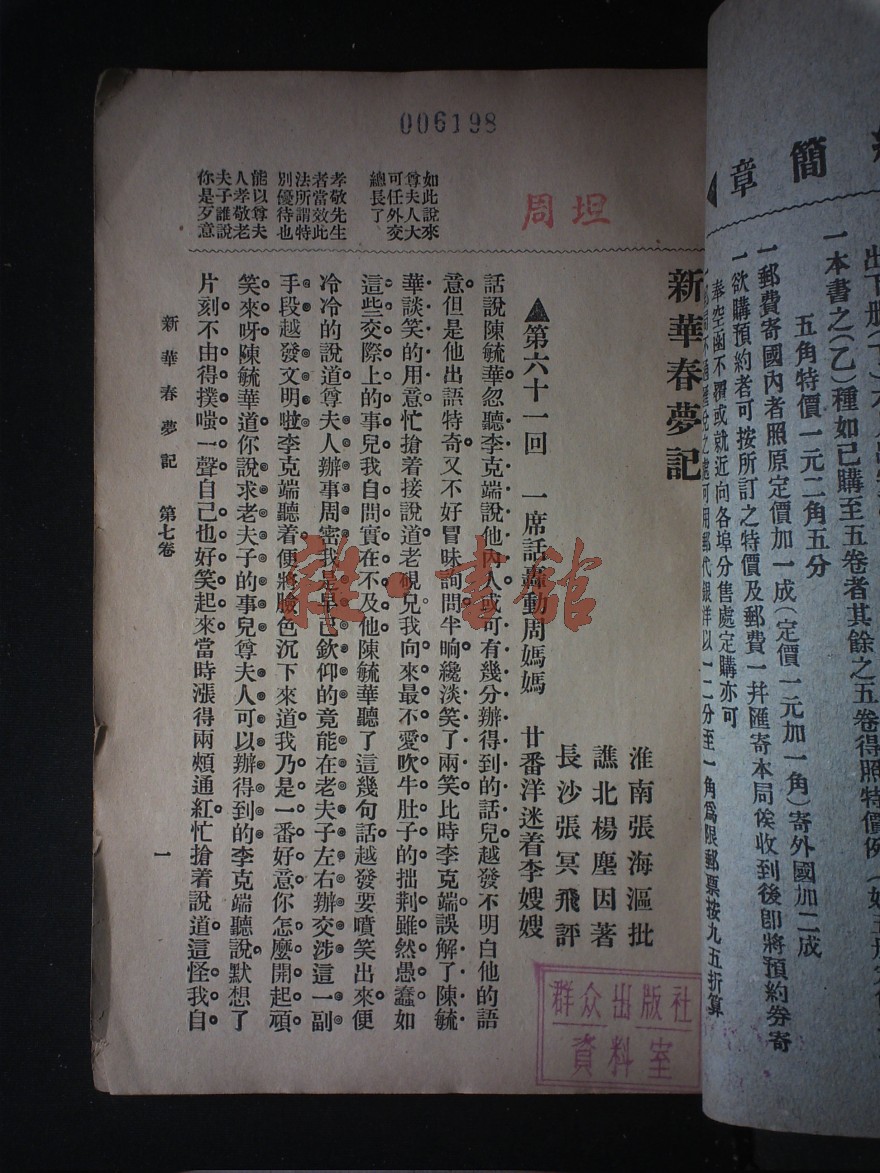 006198
周坦
如此說來
尊夫人大
可任外交
總長了
孝敬先生
者當效此
法所謂特
別優待也
能以尊夫
人孝敬老
夫子誰說
你是歹意
新華春夢記
淮南張海漚批
譙北楊塵因著
長沙張冥飛評
▲第六十一回 一席話轟動周媽媽 廿番洋迷着李嫂嫂
話說陳毓華忽聽李克端說他內人或可有幾分辦得到的話兒越發不明白他的語
意但是他出語特奇又不好冒昧詢問半晌纔淡笑了兩笑比時李克端誤解了陳毓
華談笑的用意忙搶着接說道老硯兄我向來最不愛吹牛肚子的拙荆雖然愚蠢如
這些交際上的事兒我自問實在不及他陳毓華聽了這幾句話越發要噴笑出來便
冷冷的說道尊夫人辦事周密我是早已欽仰的竟能在老夫子左右辦交涉這一副
手段越發文明啦李克端聽着便將臉色沉下來道我乃是一番好意你怎麽開起頑
笑來呀陳毓華道你說求老夫子的事兒尊夫人可以辦得到的李克端聽說默想了
片刻不由得撲嗤一聲自己也好笑起來當時漲得兩頰通紅忙搶着說道這怪我自
新華春夢記 第七卷
一
雜·書館
群众出版社
資料室
簡章
一本書之(乙)種如已購至五卷者其餘之五卷得照特價例
五角特價一元二角五分
一郵費寄國內者照原定價加一成(定價一元加一角)寄外國加二成
一欲購預約者可按所訂之特價及郵費一幷匯寄本局俟收到後即將預約券寄
奉空函不覆或就近向各埠分售處定購亦可
用郵代銀洋以一二分至一角爲限郵票按九五折算